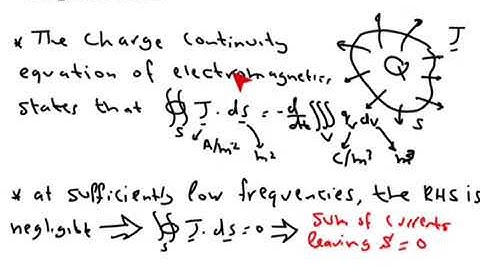 * The charge continuity
equation of electromagnetics
states that ∯_S J · ds = -d/dt ∭_V q dv
A/m² m² C/m³ m³
J
Q
S
* at sufficiently low frequencies, the RHS is
negligible ⟹ ∯_S J · ds = 0 ⟹ sum of currents
leaving S = 0